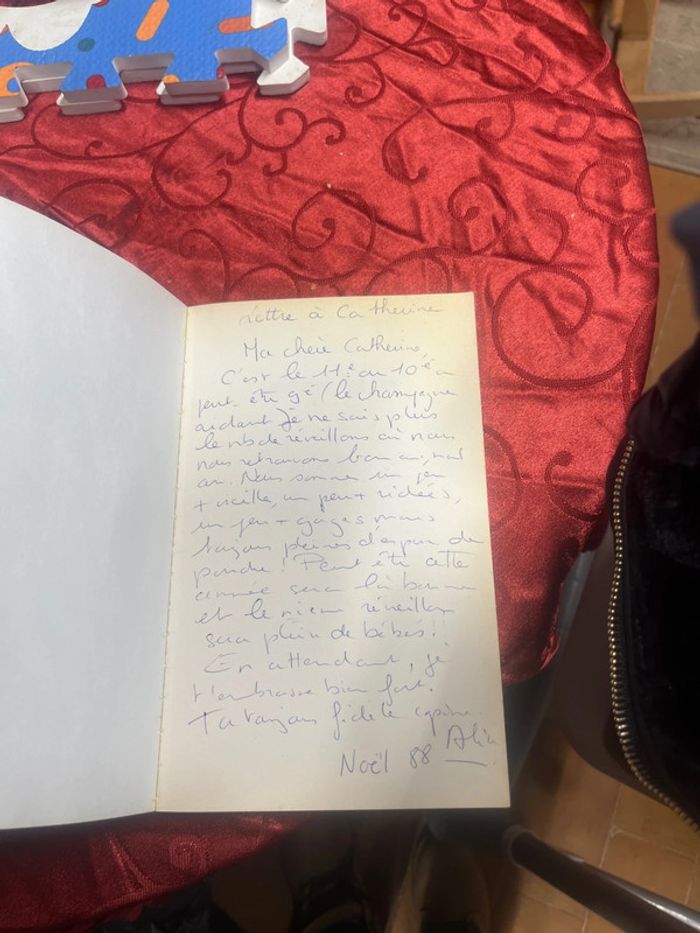 Lettre à Catherine
Ma chère Catherine,
C'est le 11è ou 10è ou
peut-être 9è (le champagne
aidant je ne sais plus
le nb de réveillons où nous
nous retrouvons bon an, mal
an. Nous sommes un peu
+ vieilles, un peu + ridées,
un peu + gagas mais
toujours pleines d'espoir de
pondre ! Peut être cette
année sera la bonne
et le réveillon
sera plein de bébés !!
En attendant, je
t'embrasse bien fort.
Ta toujours fidèle copine
Noël 88